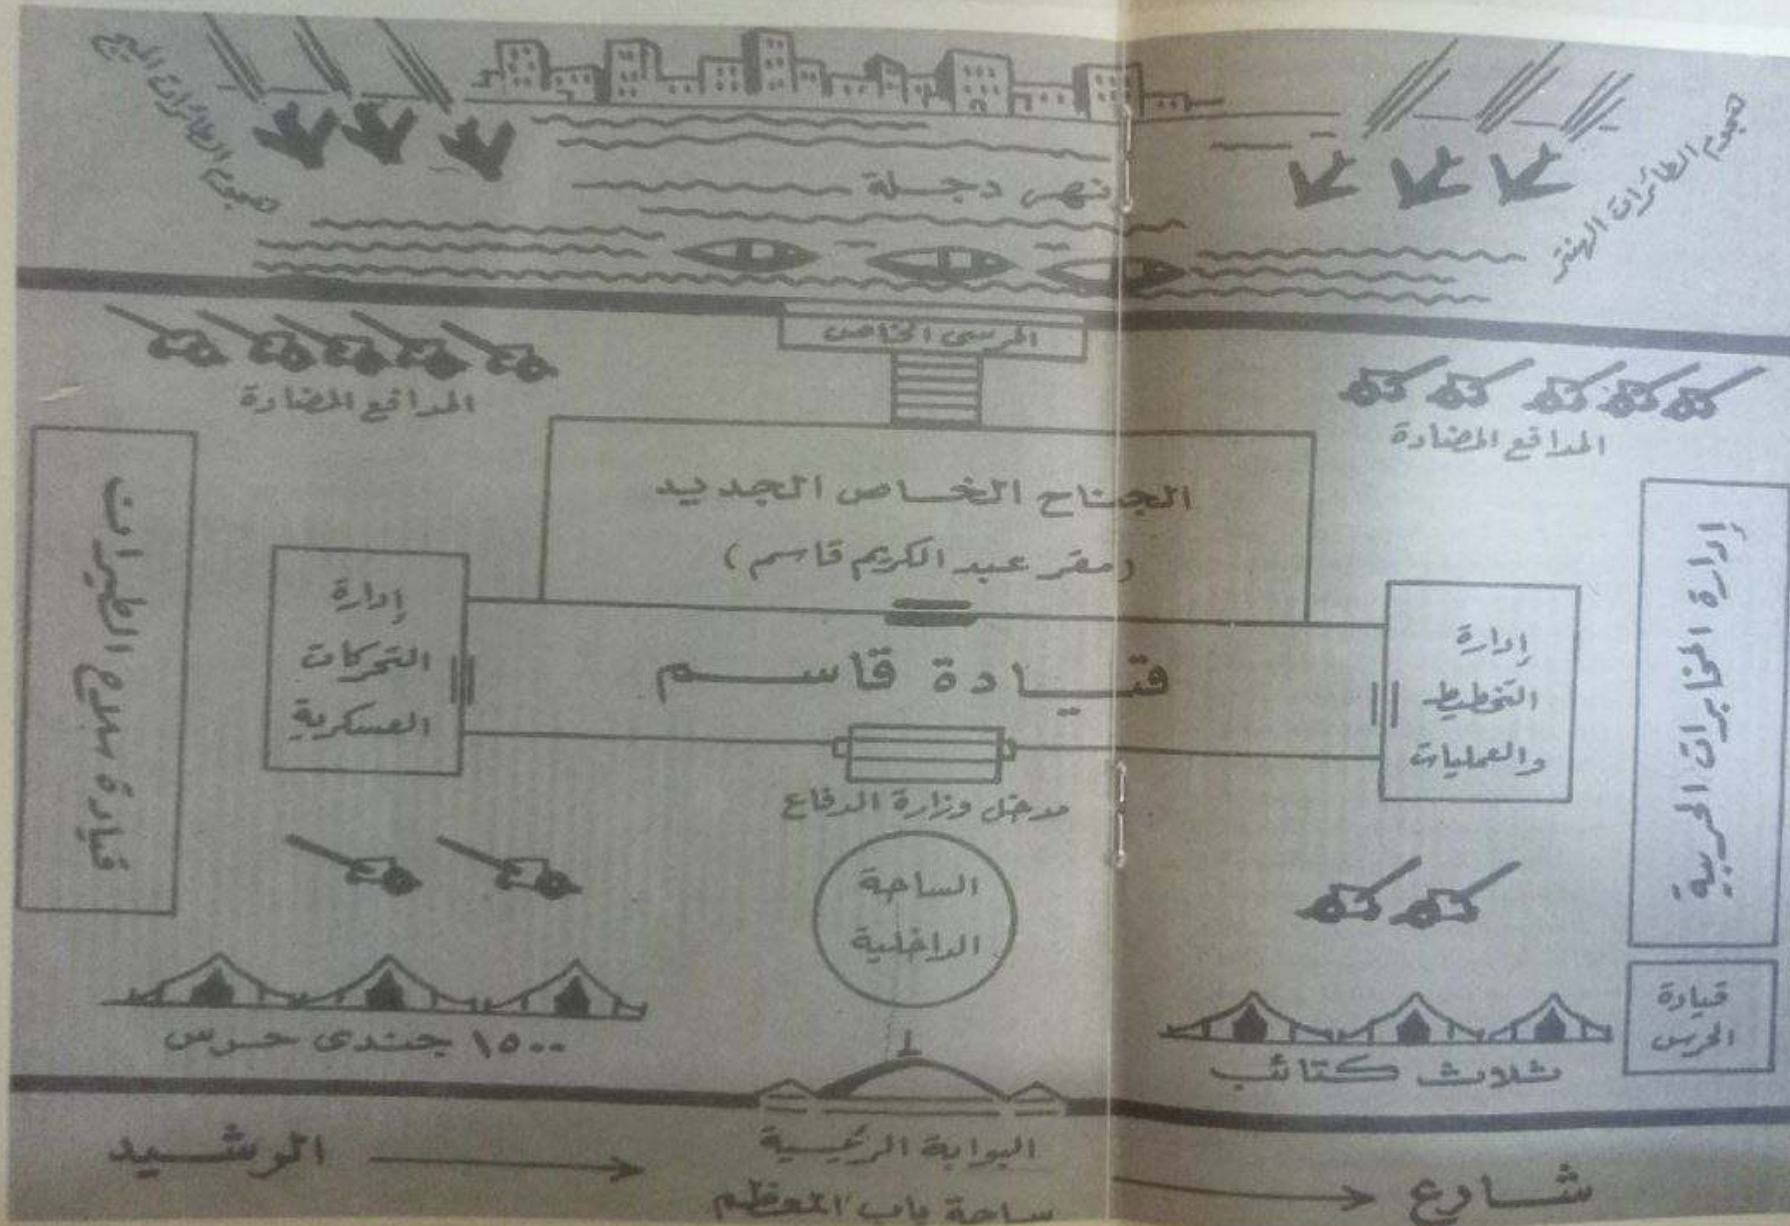 هجوم الطائرات الهنتر
هجوم الطائرات الميج
نهر دجلة
المرسى الخاص
المدافع المضادة
المدافع المضادة
الجناح الخاص الجديد
(مقر عبد الكريم قاسم)
إدارة المخابرات الحربية
إدارة
التخطيط
والعمليات
قيادة قاسم
إدارة
التحركات
العسكرية
قيادة سلاح الطيران
مدخل وزارة الدفاع
الساحة
الداخلية
قيادة
الحرس
ثلاث كتائب
١٥٠٠ جندى حرس
البوابة الرئيسية
شارع
الرشيد
ساحة باب المعظم